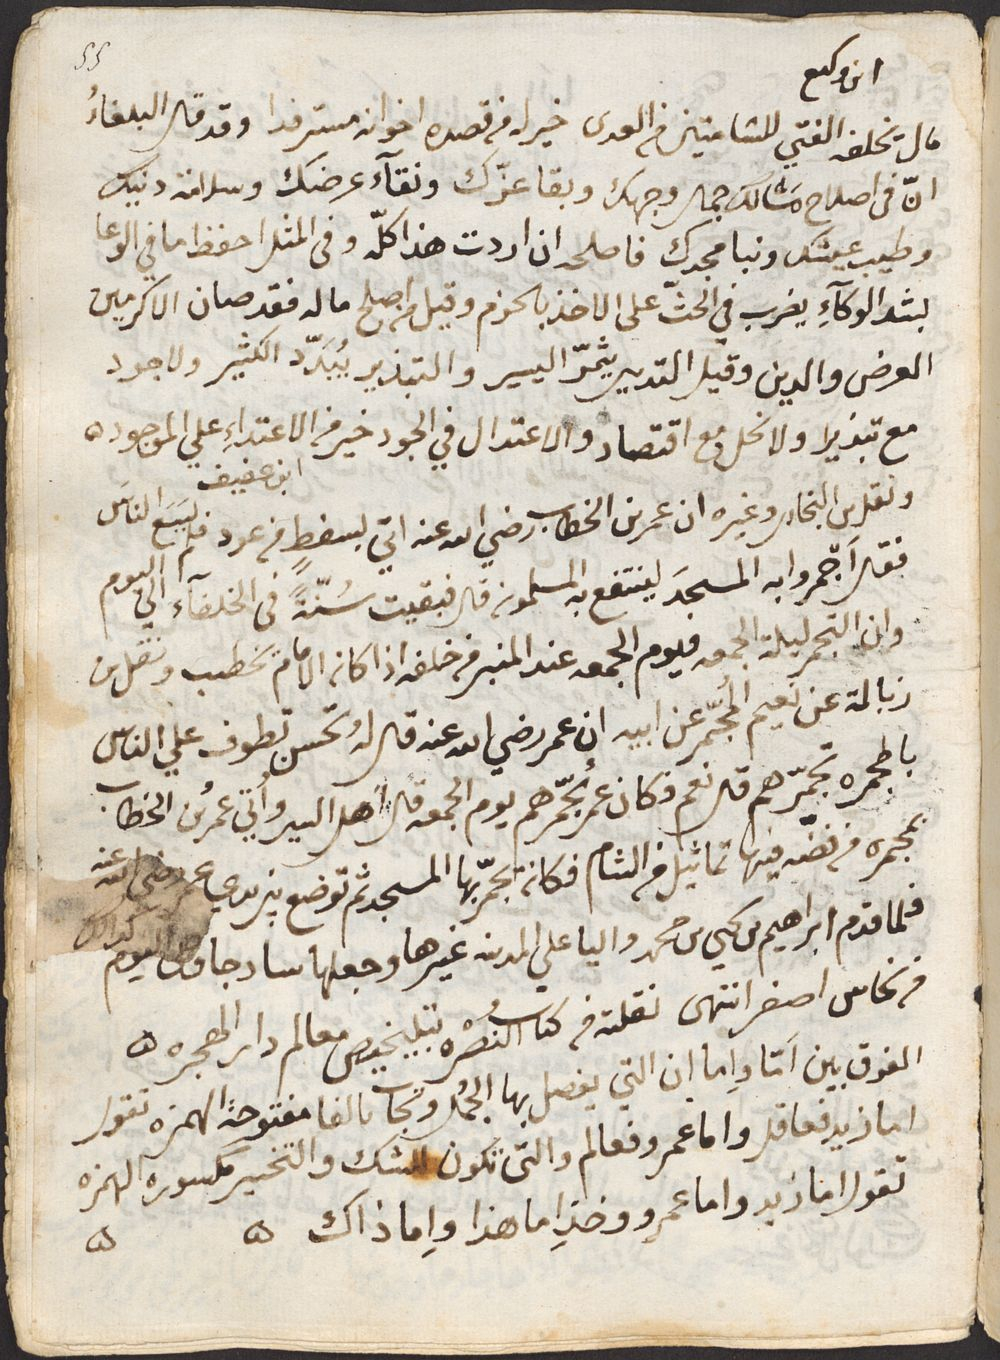 ٥٥
ابن وكيع
مال يخلفه الفتى للشامتين من العدى خير له من قصده اخوانه مسترفدا وقد قال البلغاءُ
انّ في اصلاح مَالك جمال وجهك وبقا عزّك ونقآء عرضك وسلامة دنيك
وطيب عيشك ونبا مجدك فاصلحه ان اردت هذا كلّه وفي المثل احفظ ما في الوعا
بشد الوكآءِ يضرب في الحثّ على الاخذ بالحزم وقيل من اصلح ماله فقد صان الاكرمين
العرض والدين وقيل التدبير يثمّر اليسير والتبذير يُبَدّد الكثير ولا جود
مع تبذير ولا بخل مع اقتصاد والاعتدال في الجود خير من الاعتداءِ علي الموجود ه
ابن عفيف
ونقل بن النجار وغيره ان عمر بن الخطاب رضي الله عنه اتي بسفطٍ من عود فلم يَسَع الناسَ
فقال اَجْمروا به المسجدَ لينتفع به المسلمون قال فبقيت سُنّةً في الخلفآء الي اليوم
وان التجمر ليلة الجمعه ويوم الجمعه عند المنبر من خلفه اذا كان الامام يخطب ونقل بن
زبالة عن نعيم المُجَمّر عن ابيه ان عمر رضي الله عنه قال له تحسن تطوف علي الناس
بالمجمره تجمّرهم قال نعم فكان عمر يُجَمّرهم يوم الجمعه قال اهل السير واُتي عمرُ بن الخطاب
بمجمره من فضّه فيها تماثيل من الشام فكان يجمّر بها المسجد ثم توضع بين يدي عمر رضي الله عنه
فلما قدم ابراهيم بن يحيي بن محمد واليا علي المدينه غيرها وجعلها ساذجا وهي اليوم كذلك
من نحاس اصفر انتهى نقلته من كتاب النُصْره بتلخيص معالم دار الهجره ه
الفرق بين اَمّا واِما ان التي يفصل بها الجُمل وتجاب بالفا مفتوحة الهمزه تقول
اما زيد فعاقل واما عمرو فعالم والتي تكون للشك والتخيير مكسورة الهمزه
تقول اِما زيد واما عمرو وخذ اِما هذا واِما ذاك ه ه